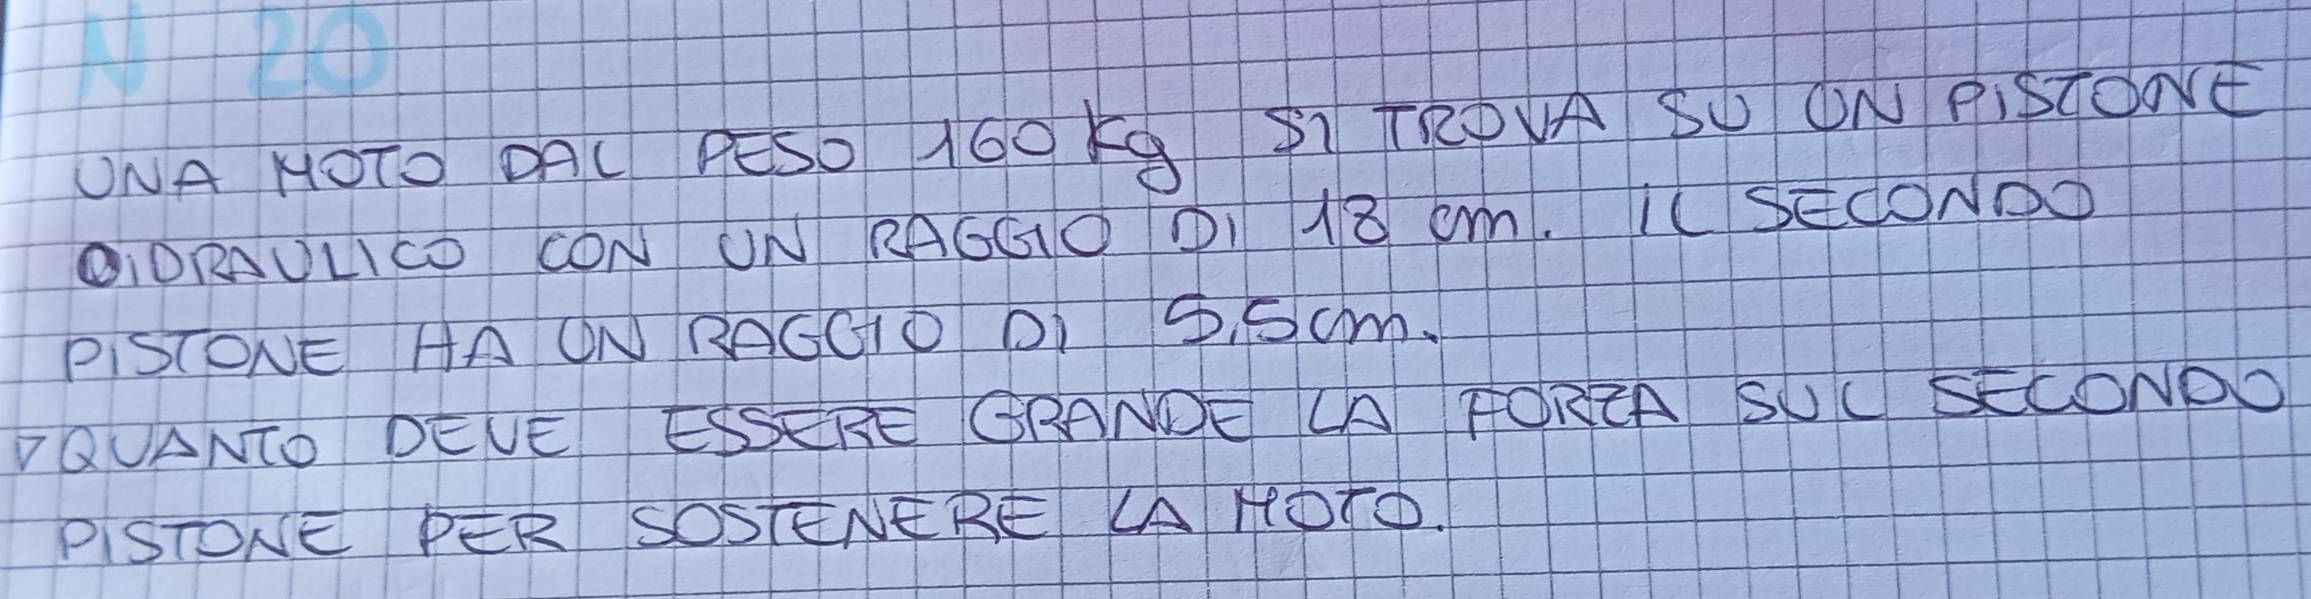 N 20
UNA MOTO DAL PESO 160 Kg SI TROVA SU UN PISTONE
OIDRAULICO CON UN RAGGIO DI 18 cm. IL SECONDO
PISTONE HA UN RAGGIO DI 5,5 cm.
▽QUANTO DEVE ESSERE GRANDE LA FORZA SUL SECONDO
PISTONE PER SOSTENERE LA MOTO.